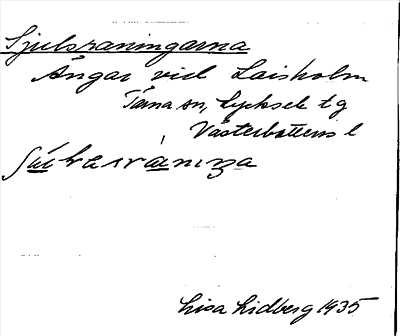 Sjulsraningarna
Ängar vid Laisholm
Tärna sn, Lycksele tg
Västerbottens l
Lisa Lidberg 1935